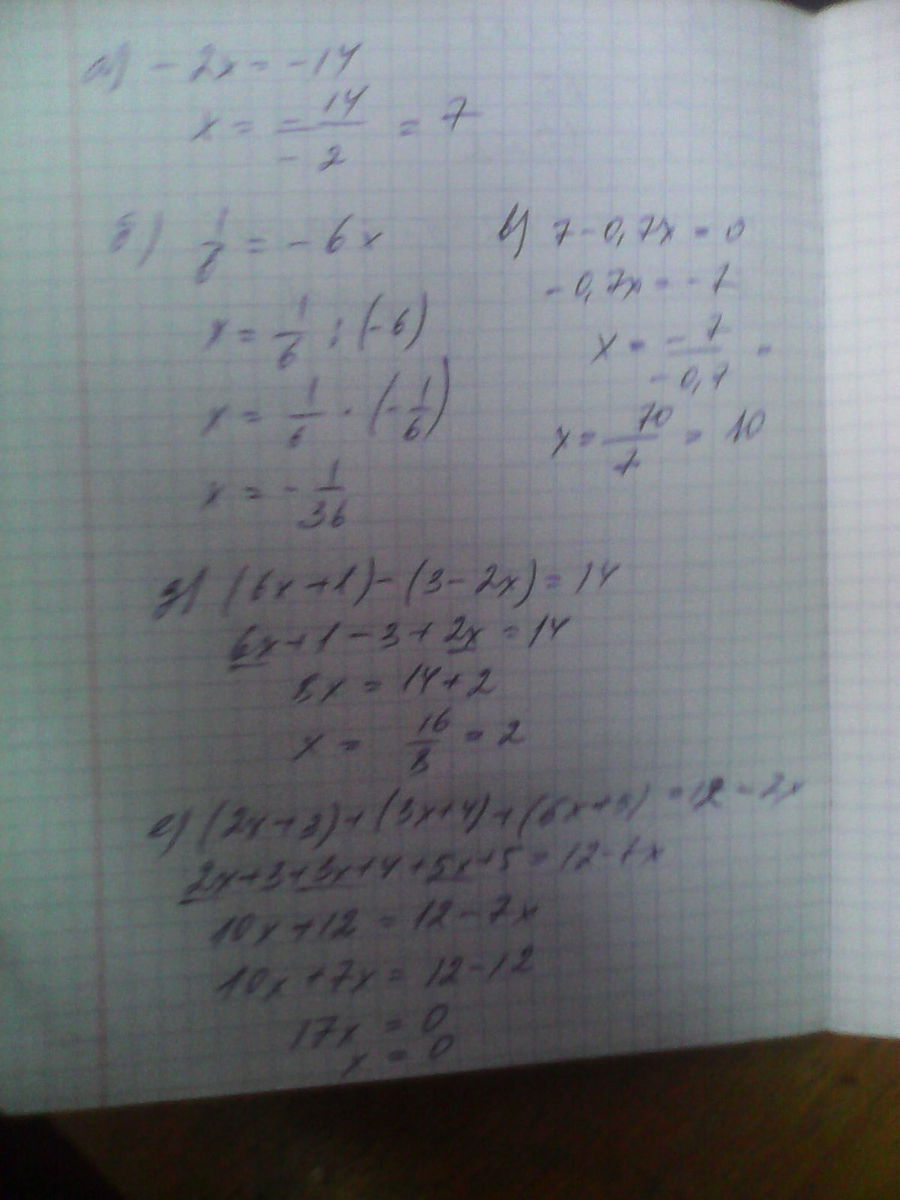 а) -2x = -14
x = -14/-2 = 7
б) 1/6 = -6x
x = 1/6 : (-6)
x = 1/6 · (-1/6)
x = -1/36
в) 7-0,7x = 0
-0,7x = -7
x = -7/-0,7 =
x = 70/7 = 10
д) (6x+1)-(3-2x) = 14
6x+1-3+2x = 14
8x = 14+2
x = 16/8 = 2
е) (2x+3)+(3x+4)+(5x+5) = 12-7x
2x+3+3x+4+5x+5 = 12-7x
10x+12 = 12-7x
10x+7x = 12-12
17x = 0
x = 0